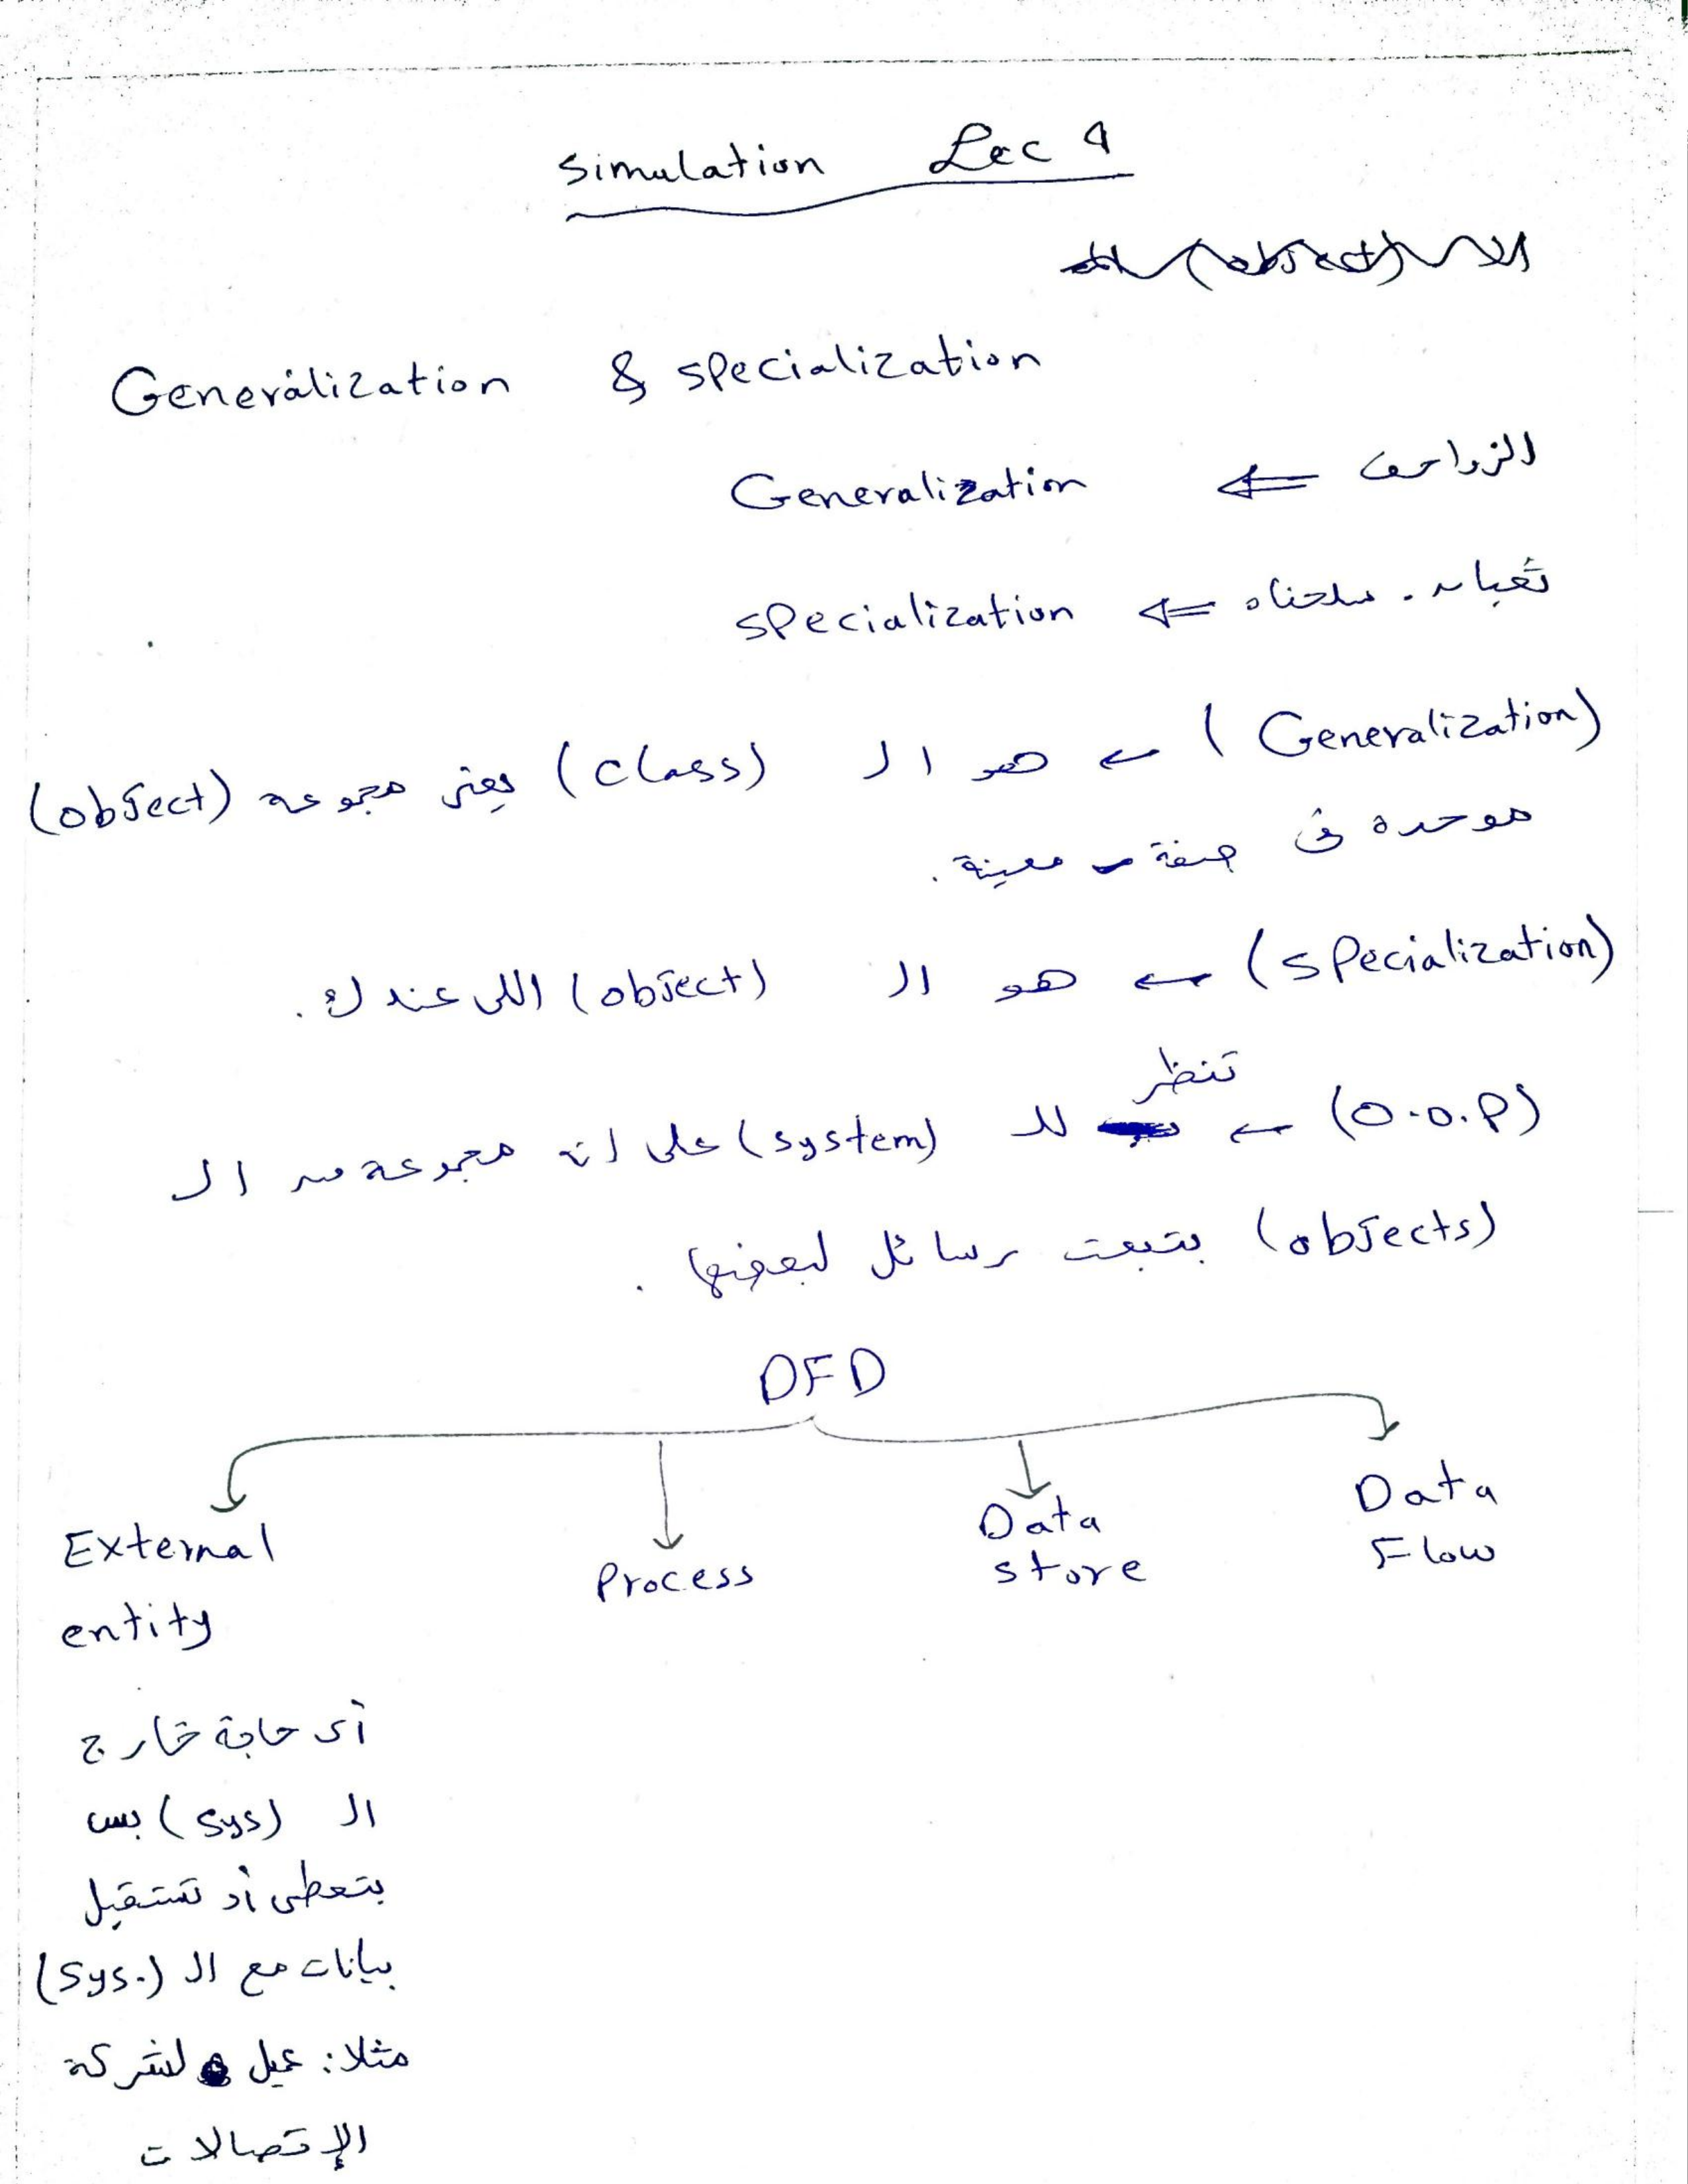 simulation Lec 4
Generalization & specialization
الزواحف ⇐ Generalization
ثعبان. سلحفاه ⇐ specialization
(Generalization) ← هو ال (class) يعنى مجموعه (object)
موحده فى صفة معينة.
(specialization) ← هو ال (object) اللى عندك.
(O.O.P) ← تنظر لل (system) على انه مجموعة من ال
(objects) بتبعت رسائل لبعضها.
DFD
External entity
Process
Data store
Data Flow
أى حاجة خارج
ال (sys) بس
بتعطى أو تستقبل
بيانات مع ال (sys.)
مثلا: عميل لشركة
الإتصالات